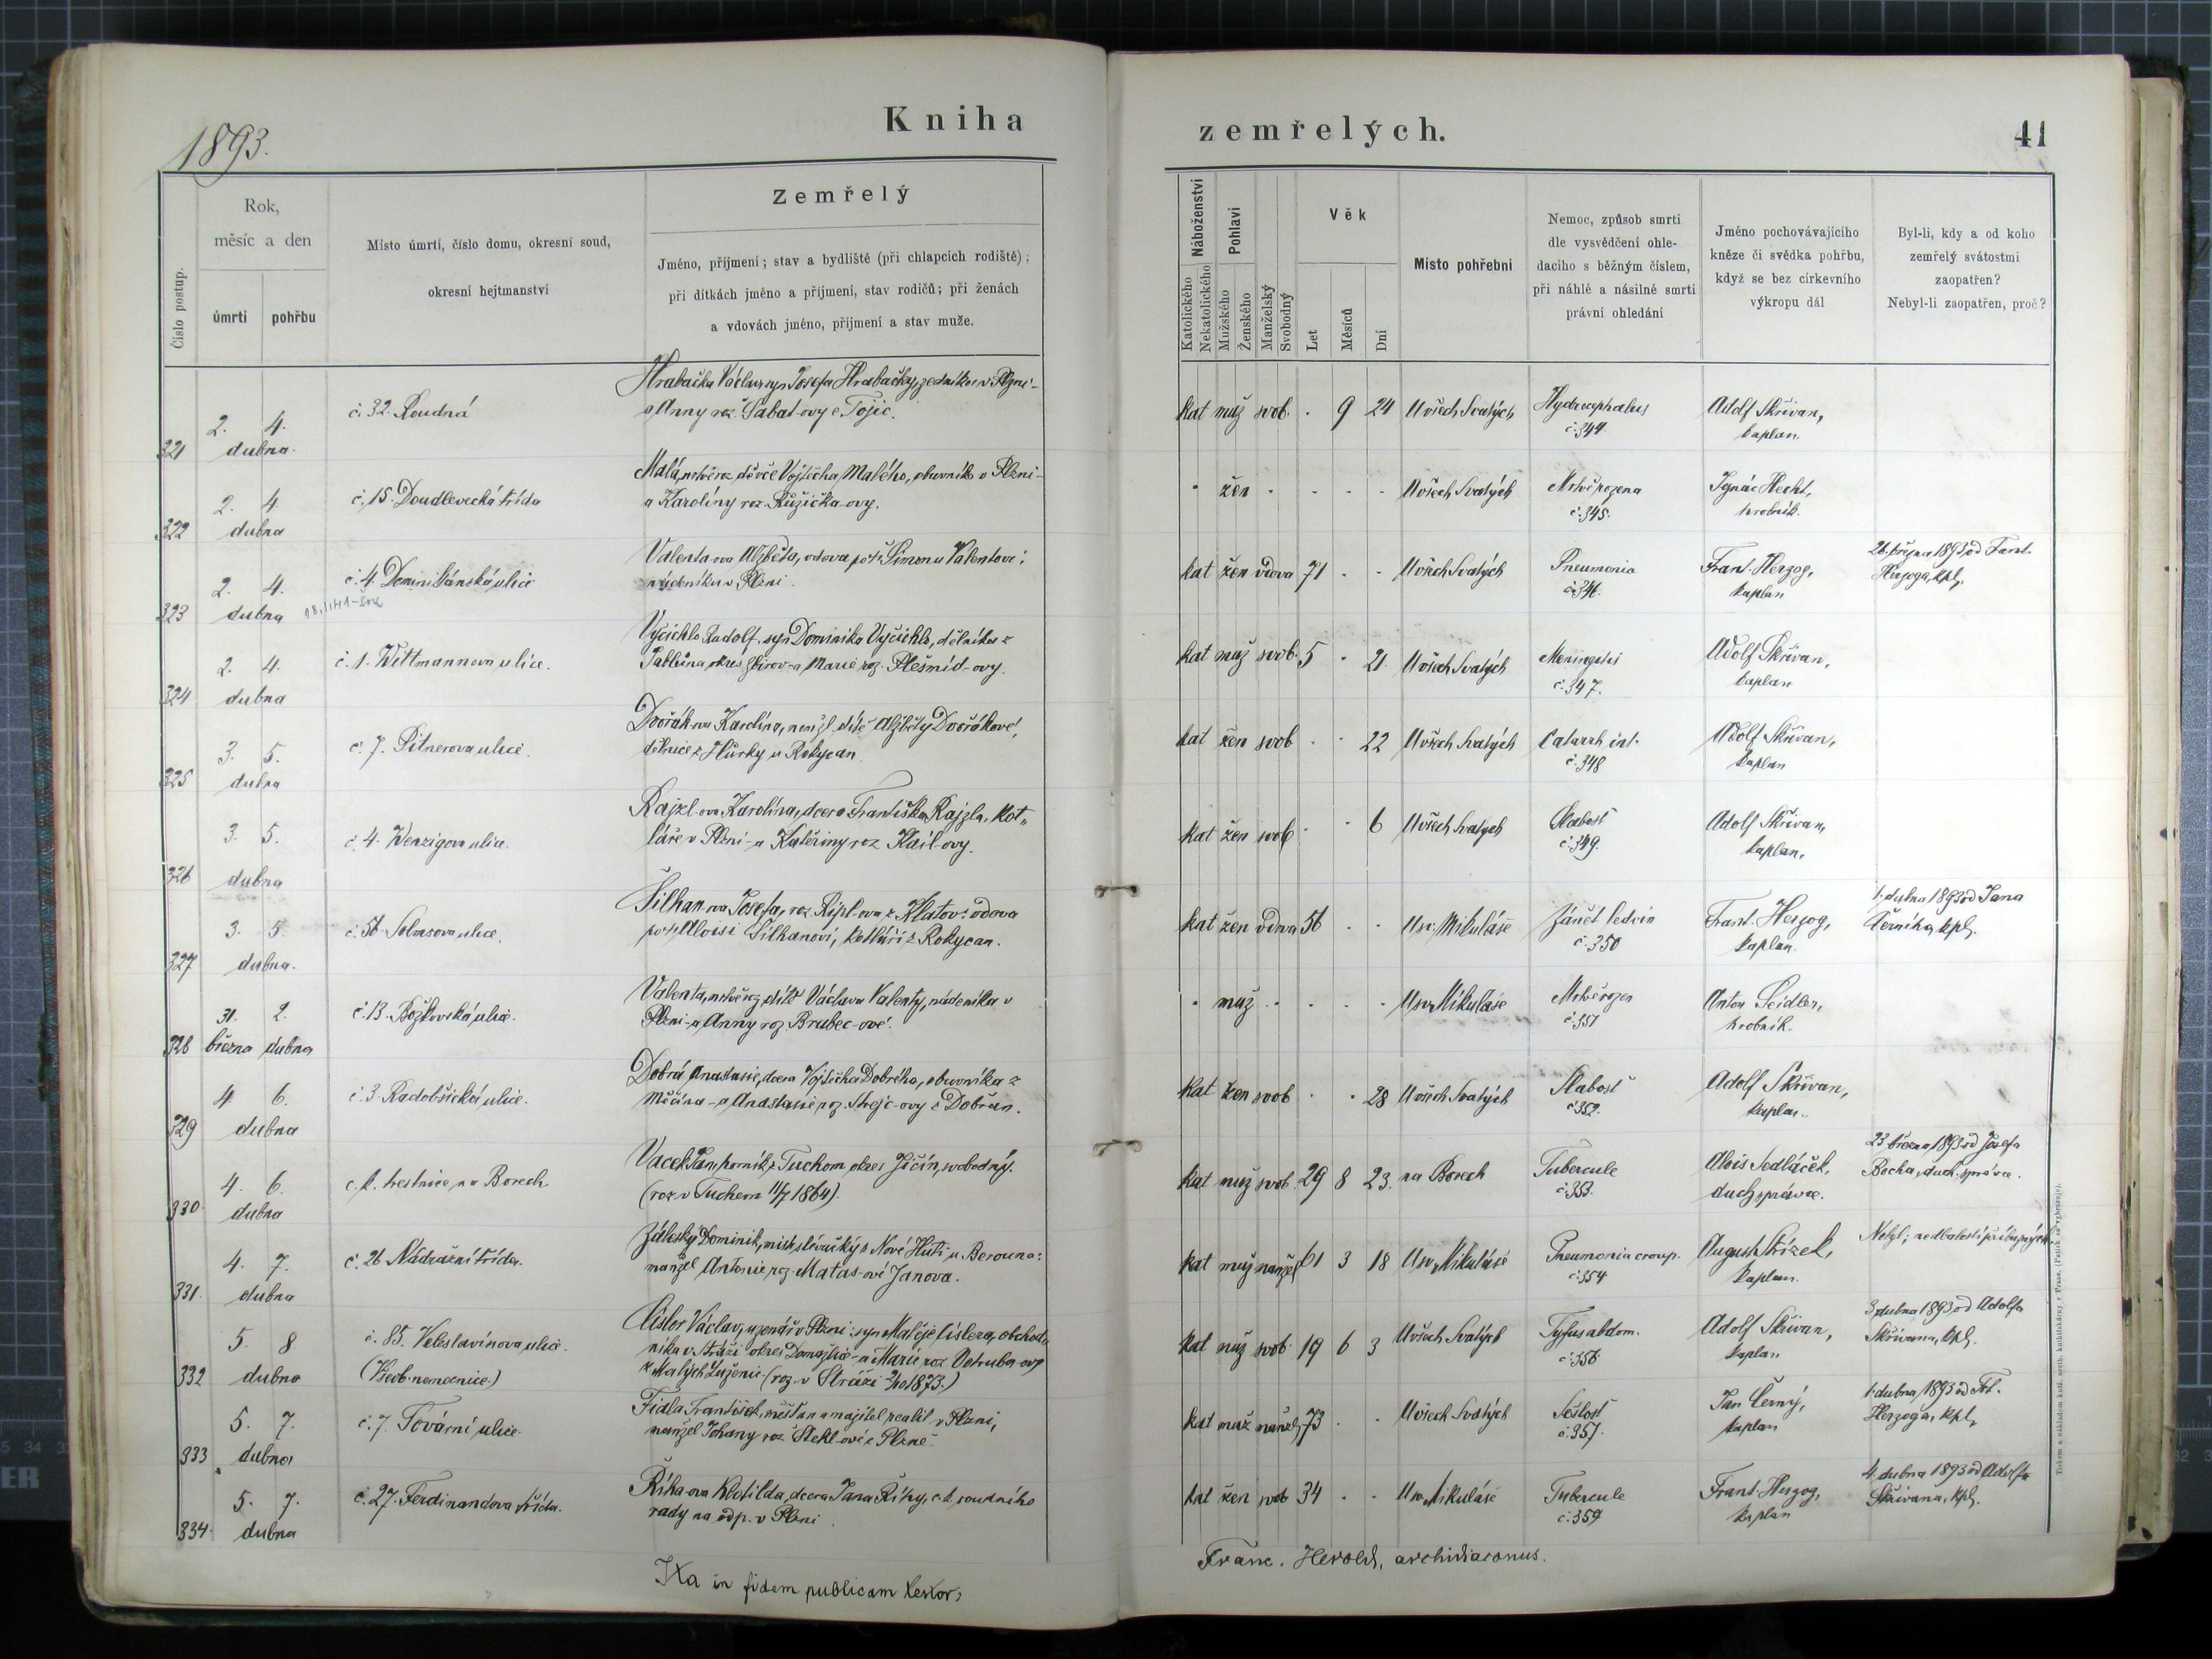 1893.
Kniha
Číslo postup.
Rok,
měsíc a den
úmrtí
pohřbu
Místo úmrtí, číslo domu, okresní soud,
okresní hejtmanství
Zemřelý
Jméno, příjmení; stav a bydliště (při chlapcích rodiště);
při dítkách jméno a příjmení, stav rodičů; při ženách
a vdovách jméno, příjmení a stav muže.
zemřelých.
41
Náboženství
Katolického
Nekatolického
Pohlaví
Mužského
Ženského
Manželský
Svobodný
Věk
Let
Měsíců
Dní
Místo pohřební
Nemoc, způsob smrti
dle vysvědčení ohle-
dacího s běžným číslem,
při náhlé a násilné smrti
právní ohledání
Jméno pochovávajícího
kněze či svědka pohřbu,
když se bez církevního
výkropu dál
Byl-li, kdy a od koho
zemřelý svátostmi
zaopatřen?
Nebyl-li zaopatřen, proč?
321 2. 4. dubna. č. 32. Roudná
Hrabačka Václav, syn Josefa Hrabačky, zedníka v Plzni-
a Anny roz. Sabat-ovy z Tojic.
kat muž svob. . 9 24 U všech Svatých Hydrocephalus č. 344. Adolf Skřivan, kaplan.
322 2. 4. dubna č. 15. Doudlevecká třída
Malá, mrtvěroz. děvče Vojtěcha Malého, obuvníka v Plzni-
a Karolíny roz. Růžička-ovy.
žen U všech Svatých Mrtvěrozena č. 345. Ignác Hecht, hrobník.
323 2. 4. dubna č. 4. Dominikánská ulice
Valenta-ova Alžběta, vdova po Šimonu Valentovi,
nádeníku v Plzni.
kat žen vdova 71 . . U všech Svatých Pneumonia č. 346. Frant. Herzog, kaplan
26. března 1893 od Frant.
Herzoga, kpl.
324 2. 4. dubna č. 1. Wittmannova ulice.
Vyčichlo Rudolf, syn Dominika Vyčichla, dělníka z
okres Zbirov-a Marie roz. ovy.
kat muž svob. 5 . 21. U všech Svatých Meningitis č. 347. Adolf Skřivan, kaplan
325 3. 5. dubna č. 7. Pitnerova ulice.
Dvořák-ova Karolína, dítě Alžběty Dvořákové,
dělnice z Hůrky u Rokycan.
kat žen svob . . 22 U všech Svatých Catarrh int. č. 348 Adolf Skřivan, kaplan
326 3. 5. dubna č. 4. Wenzigova ulice.
Rajzl-ova Karolína, dcera Františka Rajzla, kot„
láře v Plzni-a Kateřiny roz. ovy.
kat žen svob . . 6 U všech Svatých Slabost č. 349. Adolf Skřivan, kaplan.
327 3. 5. dubna. č. 56. Solnsova ulice.
Šilhan-ova Josefa, roz. Ripl-ova z Klatov: vdova
po Aloisi Šilhanovi, kotláři z Rokycan.
kat žen vdova 56 . . U sv. Mikuláše Zánět ledvin č. 350 Frant. Herzog, kaplan.
1. dubna 1893 od Jana
Černého, kpl.
328 31. března 2. dubna č. 13. Božkovská ulice.
Valenta, mrtvěroz. dítě Václava Valenty, nádeníka v
Plzni-a Anny roz. Brabec-ové.
muž U sv. Mikuláše Mrtvěrozen č. 351 Anton Seidler, hrobník.
329 4 6. dubna č. 3. Radobšická ulice.
Dobrá Anastasie, dcera Vojtěcha Dobrého, obuvníka z
Měčína-a Anastasie roz. Strejc-ovy z Dobřan.
kat žen svob . . 28 U všech Svatých Slabost č. 352. Adolf Skřivan, kaplan.
330 4. 6. dubna c. k. trestnice na Borech
Vacek Jan, horník z Tuchom okres Jičín, svobodný.
(roz. v Tuchom 11/7 1864).
kat muž svob. 29 8 23. na Borech Tubercule č. 353. Alois Sedláček, duch. správce.
23. března 1893 od Josefa
Bocha, duch. správce.
331. 4. 7. dubna č. 26 Nádražní třída.
Zdeský Dominik, mistr slévačský z Nové Huti u Berouna:
manžel Antonie roz. Matas-ové z Janova.
kat muž manžel 61 3 18 U sv. Mikuláše Pneumonia croup. č. 354 August Střízek, kaplan.
Nebyl; nedbalostí příbuzných.
332 5. 8 dubna č. 85. Veleslavínova ulice.
(Všeob. nemocnice.)
Cisler Václav, uzenář v Plzni: syn Matěje Cislera, obchod-
níka v Stráži okres Domažlice-a Marie roz. Votruba-ovy
z Malých (roz. v Stráži 2/10 1873.)
kat muž svob. 19 6 3 U všech Svatých Tyfus abdom. č. 356 Adolf Skřivan, kaplan
3. dubna 1893 od Adolfa
Skřivana, kpl.
333 5. 7. dubna č. 7. Tovární ulice.
Fiala František, měšťan a majitel realit v Plzni,
manžel Johany roz. Stekl-ové z Plzně.
kat muž manžel 73 . . U všech Svatých Sešlost č. 357. Jan Černý, kaplan
1. dubna 1893 od Frt.
Herzoga, kpl.
334. 5. 7. dubna č. 27. Ferdinandova třída.
Říha-ova Klotilda, dcera Jana Říhy, c. k. soudního
rady na odp. v Plzni.
kat žen svob 34 . . U sv. Mikuláše Tubercule č. 359 Frant. Herzog, kaplan
4. dubna 1893 od Adolfa
Skřivana, kpl.
Ita in fidem publicam testor,
Franc. Herold, archidiaconus.